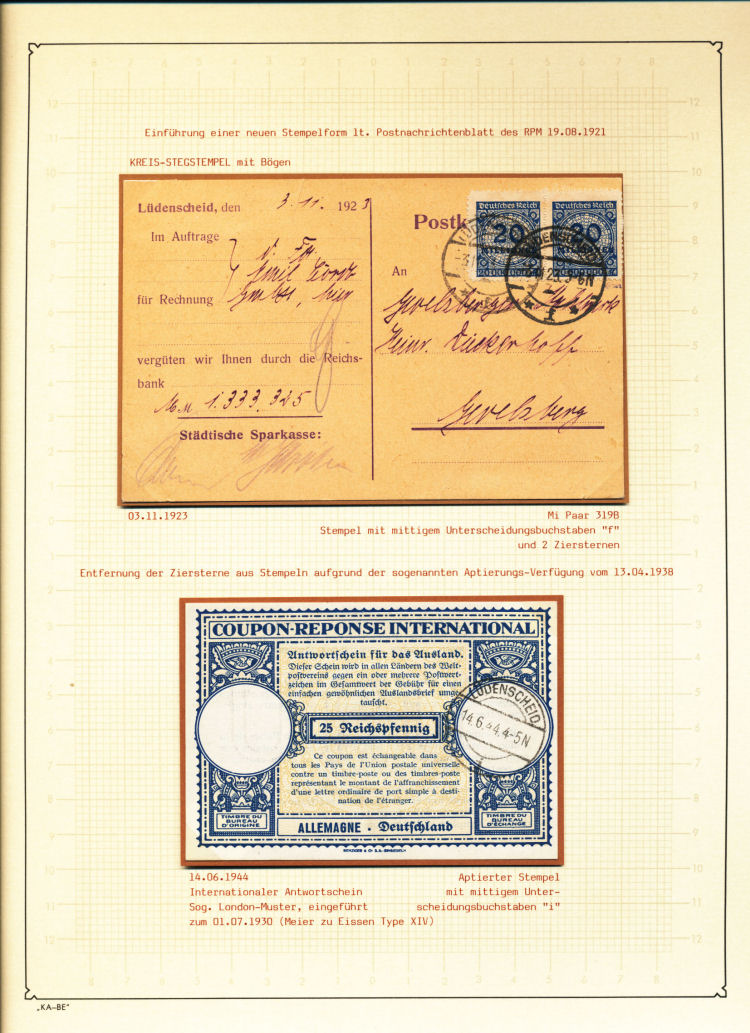 Einführung einer neuen Stempelform lt. Postnachrichtenblatt des RPM 19.08.1921
KREIS-STEGSTEMPEL mit Bögen
Lüdenscheid, den 3. 11. 1923
Im Auftrage
für Rechnung
vergüten wir Ihnen durch die Reichs-
bank
1.333.325
Städtische Sparkasse:
Postk
An
Heinr. Dickerhoff
Gevelsberg
Deutsches Reich
20
Deutsches Reich
20
LÜDENSCHEID
f
03.11.1923
Mi Paar 319B
Stempel mit mittigem Unterscheidungsbuchstaben "f"
und 2 Ziersternen
Entfernung der Ziersterne aus Stempeln aufgrund der sogenannten Aptierungs-Verfügung vom 13.04.1938
COUPON-REPONSE INTERNATIONAL
Antwortschein für das Ausland.
Dieser Schein wird in allen Ländern des Welt-
postvereins gegen ein oder mehrere Postwert-
zeichen im Gesamtwert der Gebühr für einen
einfachen gewöhnlichen Auslandsbrief umge
tauscht.
25 Reichspfennig
Ce coupon est échangeable dans
tous les Pays de l'Union postale universelle
contre un timbre-poste ou des timbres-poste
représentant le montant de l'affranchissement
d'une lettre ordinaire de port simple à desti-
nation de l'étranger.
TIMBRE DU
BUREAU
D'ORIGINE
TIMBRE DU
BUREAU
D'ÉCHANGE
ALLEMAGNE · Deutschland
LÜDENSCHEID
14.6.44.4-5N
14.06.1944
Internationaler Antwortschein
Sog. London-Muster, eingeführt
zum 01.07.1930 (Meier zu Eissen Type XIV)
Aptierter Stempel
mit mittigem Unter-
scheidungsbuchstaben "i"
„KA-BE"